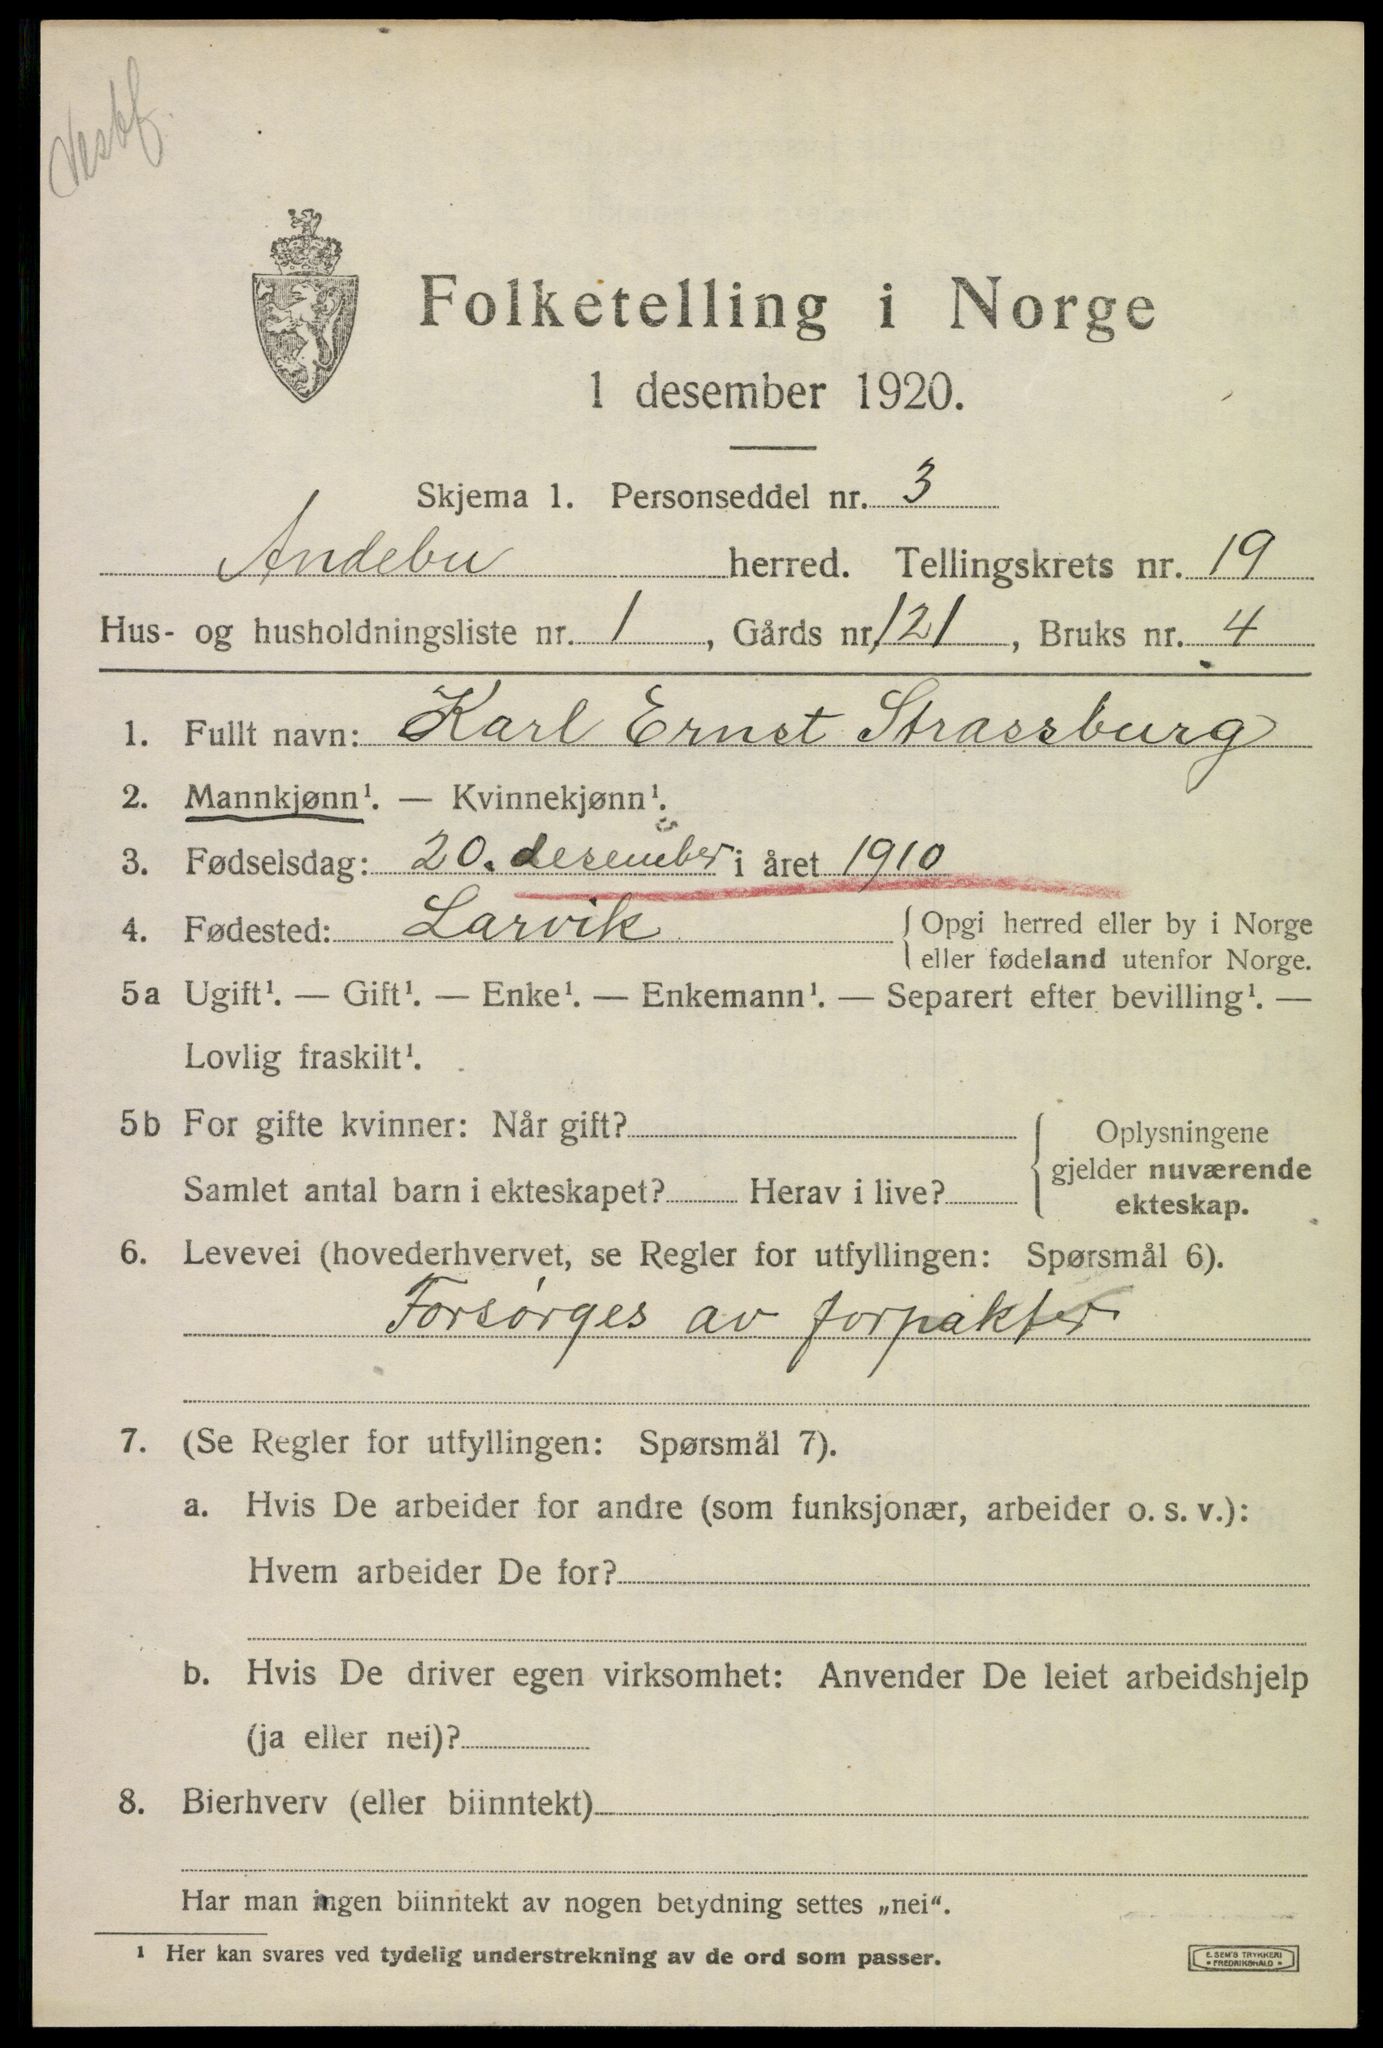 Vestf.
Folketelling i Norge
1 desember 1920.
Skjema 1. Personseddel nr. 3
Andebu herred. Tellingskrets nr. 19
Hus- og husholdningsliste nr. 1, Gårds nr. 121, Bruks nr. 4
1. Fullt navn: Karl Ernst Strassburg
2. Mannkjønn¹. — Kvinnekjønn¹.
3. Fødselsdag: 20. desember i året 1910
4. Fødested: Larvik { Opgi herred eller by i Norge
eller fødeland utenfor Norge.
5a Ugift¹. — Gift¹. — Enke¹. — Enkemann¹. — Separert efter bevilling¹. —
Lovlig fraskilt¹.
5b For gifte kvinner: Når gift? { Oplysningene
gjelder nuværende
Samlet antal barn i ekteskapet? Herav i live?
ekteskap.
6. Levevei (hovederhvervet, se Regler for utfyllingen: Spørsmål 6).
Forsørges av forpakter
7. (Se Regler for utfyllingen: Spørsmål 7).
a. Hvis De arbeider for andre (som funksjonær, arbeider o. s. v.):
Hvem arbeider De for?
b. Hvis De driver egen virksomhet: Anvender De leiet arbeidshjelp
(ja eller nei)?
8. Bierhverv (eller biinntekt)
Har man ingen biinntekt av nogen betydning settes „nei“.
¹ Her kan svares ved tydelig understrekning av de ord som passer.
E. SEM'S TRYKKERI
• FREDRIKSHALD •